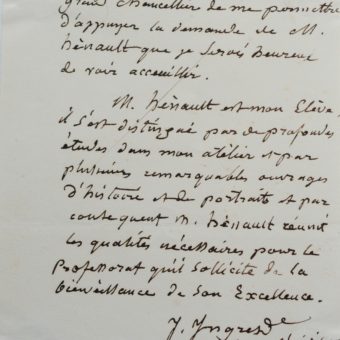 grand chancelier de me permettre
d'appuyer la demande de M.
hénault que je serois heureux
de voir acceuillir.
M. hénault est mon Elève
il s'est distingué par de profondes
études dans mon atelier et par
plusieurs remarquables ouvrages
d'histoire et de portraits et par
contequent M. hénault réunit
les qualités nécessaires pour le
professorat qu'il sollicite de la
bienveillance de son Excellence.
J. Ingres